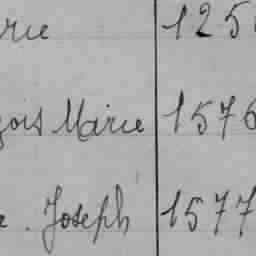 rie 125
çois Marie 1576
. Joseph 1577